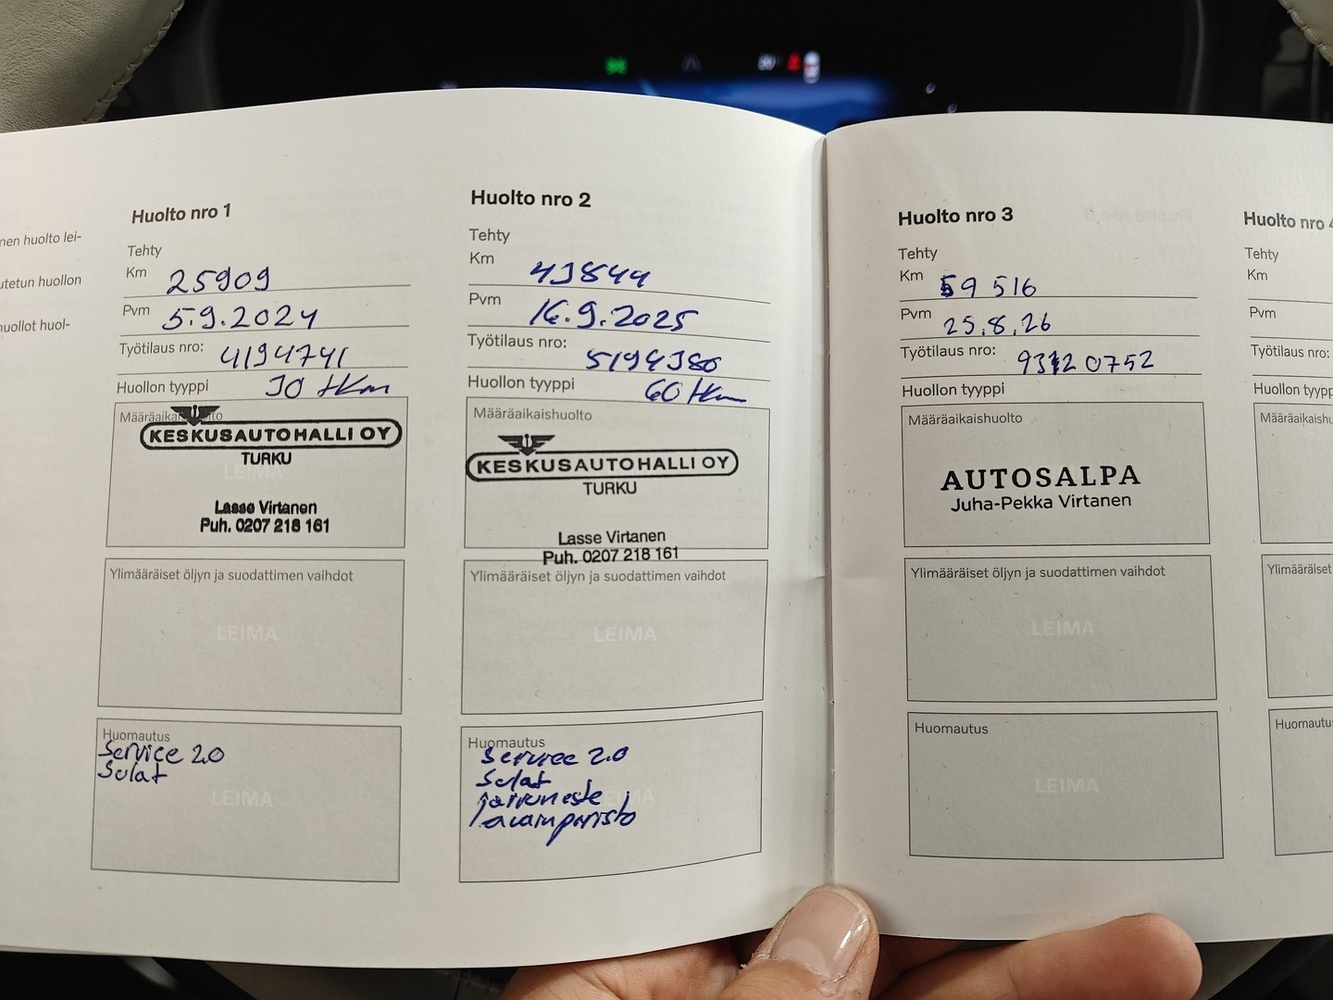 nen huolto lei-
utetun huollon
nuollot huol-
Huolto nro 1
Tehty
Km 25909
Pvm 5.9.2024
Työtilaus nro: 4194741
Huollon tyyppi 30 tkm
Määräaikaishuolto
KESKUSAUTOHALLI OY
TURKU
LEIMA
Lasse Virtanen
Puh. 0207 218 161
Ylimääräiset öljyn ja suodattimen vaihdot
LEIMA
Huomautus
Service 2.0
Sulat
LEIMA
Huolto nro 2
Tehty
Km 43844
Pvm 16.9.2025
Työtilaus nro: 5194380
Huollon tyyppi 60 tkm
Määräaikaishuolto
KESKUSAUTOHALLI OY
TURKU
Lasse Virtanen
Puh. 0207 218 161
Ylimääräiset öljyn ja suodattimen vaihdot
LEIMA
Huomautus
Service 2.0
Sulat
jarruneste
avainparisto
Huolto nro 3
Tehty
Km 59 516
Pvm 25.8.26
Työtilaus nro: 9312 0752
Huollon tyyppi
Määräaikaishuolto
AUTOSALPA
Juha-Pekka Virtanen
Ylimääräiset öljyn ja suodattimen vaihdot
LEIMA
Huomautus
LEIMA
Huolto nro 4
Tehty
Km
Pvm
Työtilaus nro:
Huollon tyypp
Määräaikaishu
Ylimääräiset
Huomautu